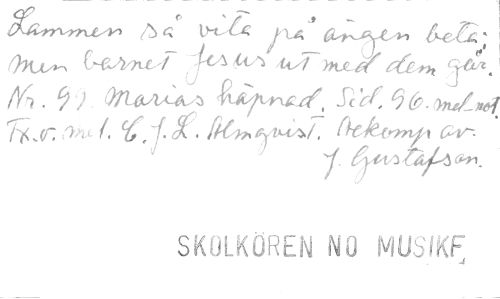 Lammen så vita på ängen beta;
men barnet Jesus ut med dem går.
Nr. 99. Marias häpnad. Sid. 96. mel-not.
Tx.o. mel. C. J. L. Almqvist. Ackomp av.
J. Gustafson.
SKOLKÖREN NO MUSIKF